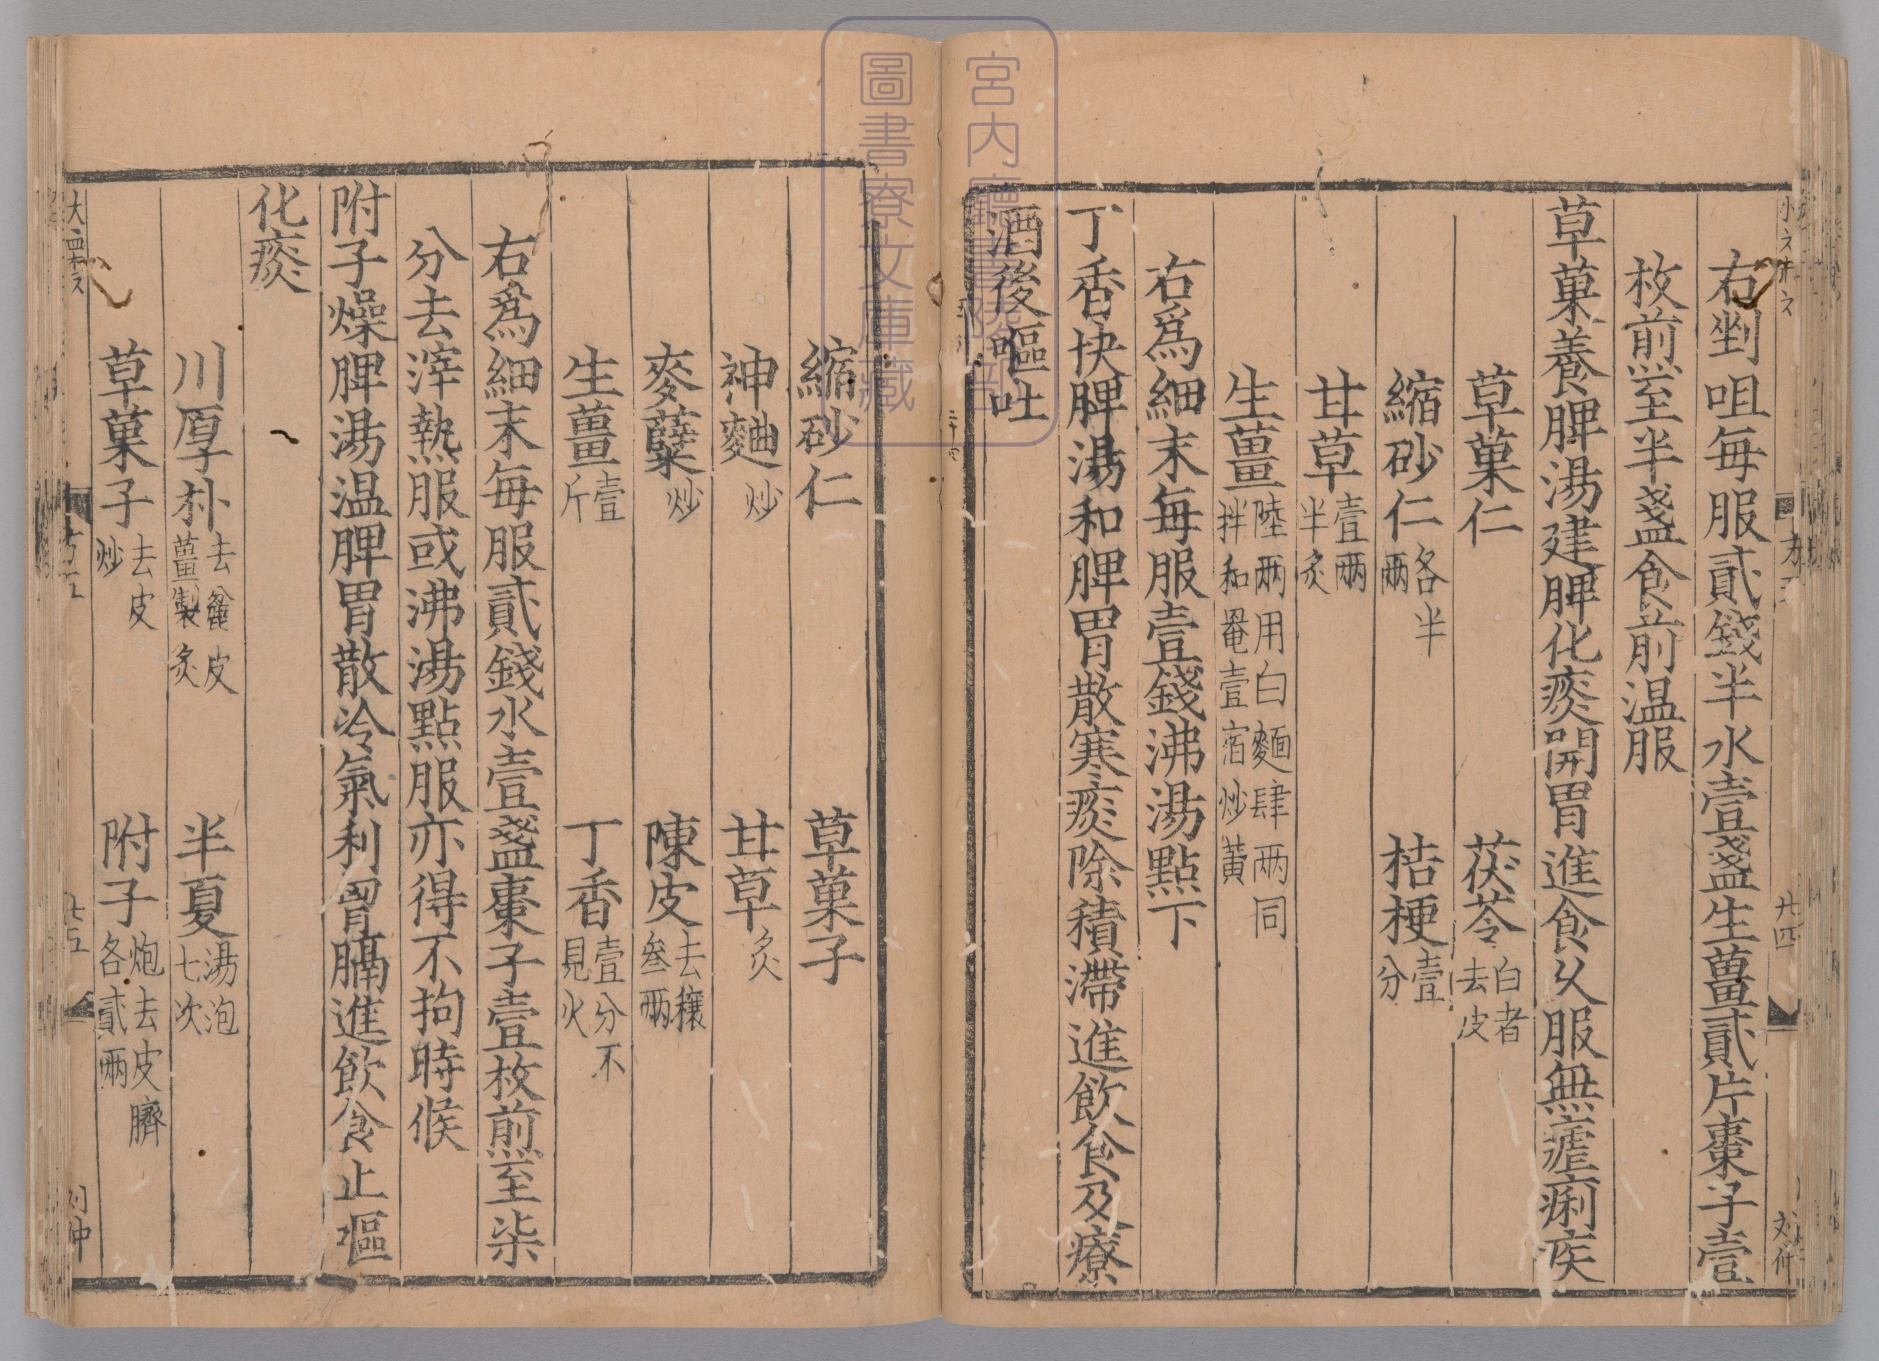 右剉咀每服貳錢半水壹盞生薑貳片棗子壹
枚前煎至半盞食前温服
草菓養脾湯建脾化痰開胃進食乆服無瘧痢疾
草菓仁 茯苓白者去皮
縮砂仁各半兩 桔梗壹分
甘草壹兩半炙
生薑陸兩用白麵肆两同拌和罨壹宿炒黃
右爲細末每服壹錢沸湯點下
丁香快脾湯和脾胃散寒痰除積滯進飲食及療
酒後嘔吐
縮砂仁 草菓子
神麯炒 甘草炙
麥蘖炒 陳皮去穰叁兩
生薑壹斤 丁香壹分不見火
右爲細末每服貳錢水壹盞棗子壹枚煎至柒
分去滓熱服或沸湯點服亦得不拘時候
附子燥脾湯温脾胃散冷氣利胷膈進飲食止嘔
化痰
川厚朴去麄皮薑製炙 半夏湯泡七次
草菓子去皮炒 附子炮去皮臍各貳兩
廿四
廿五
宮内廳書陵部
圖書寮文庫藏